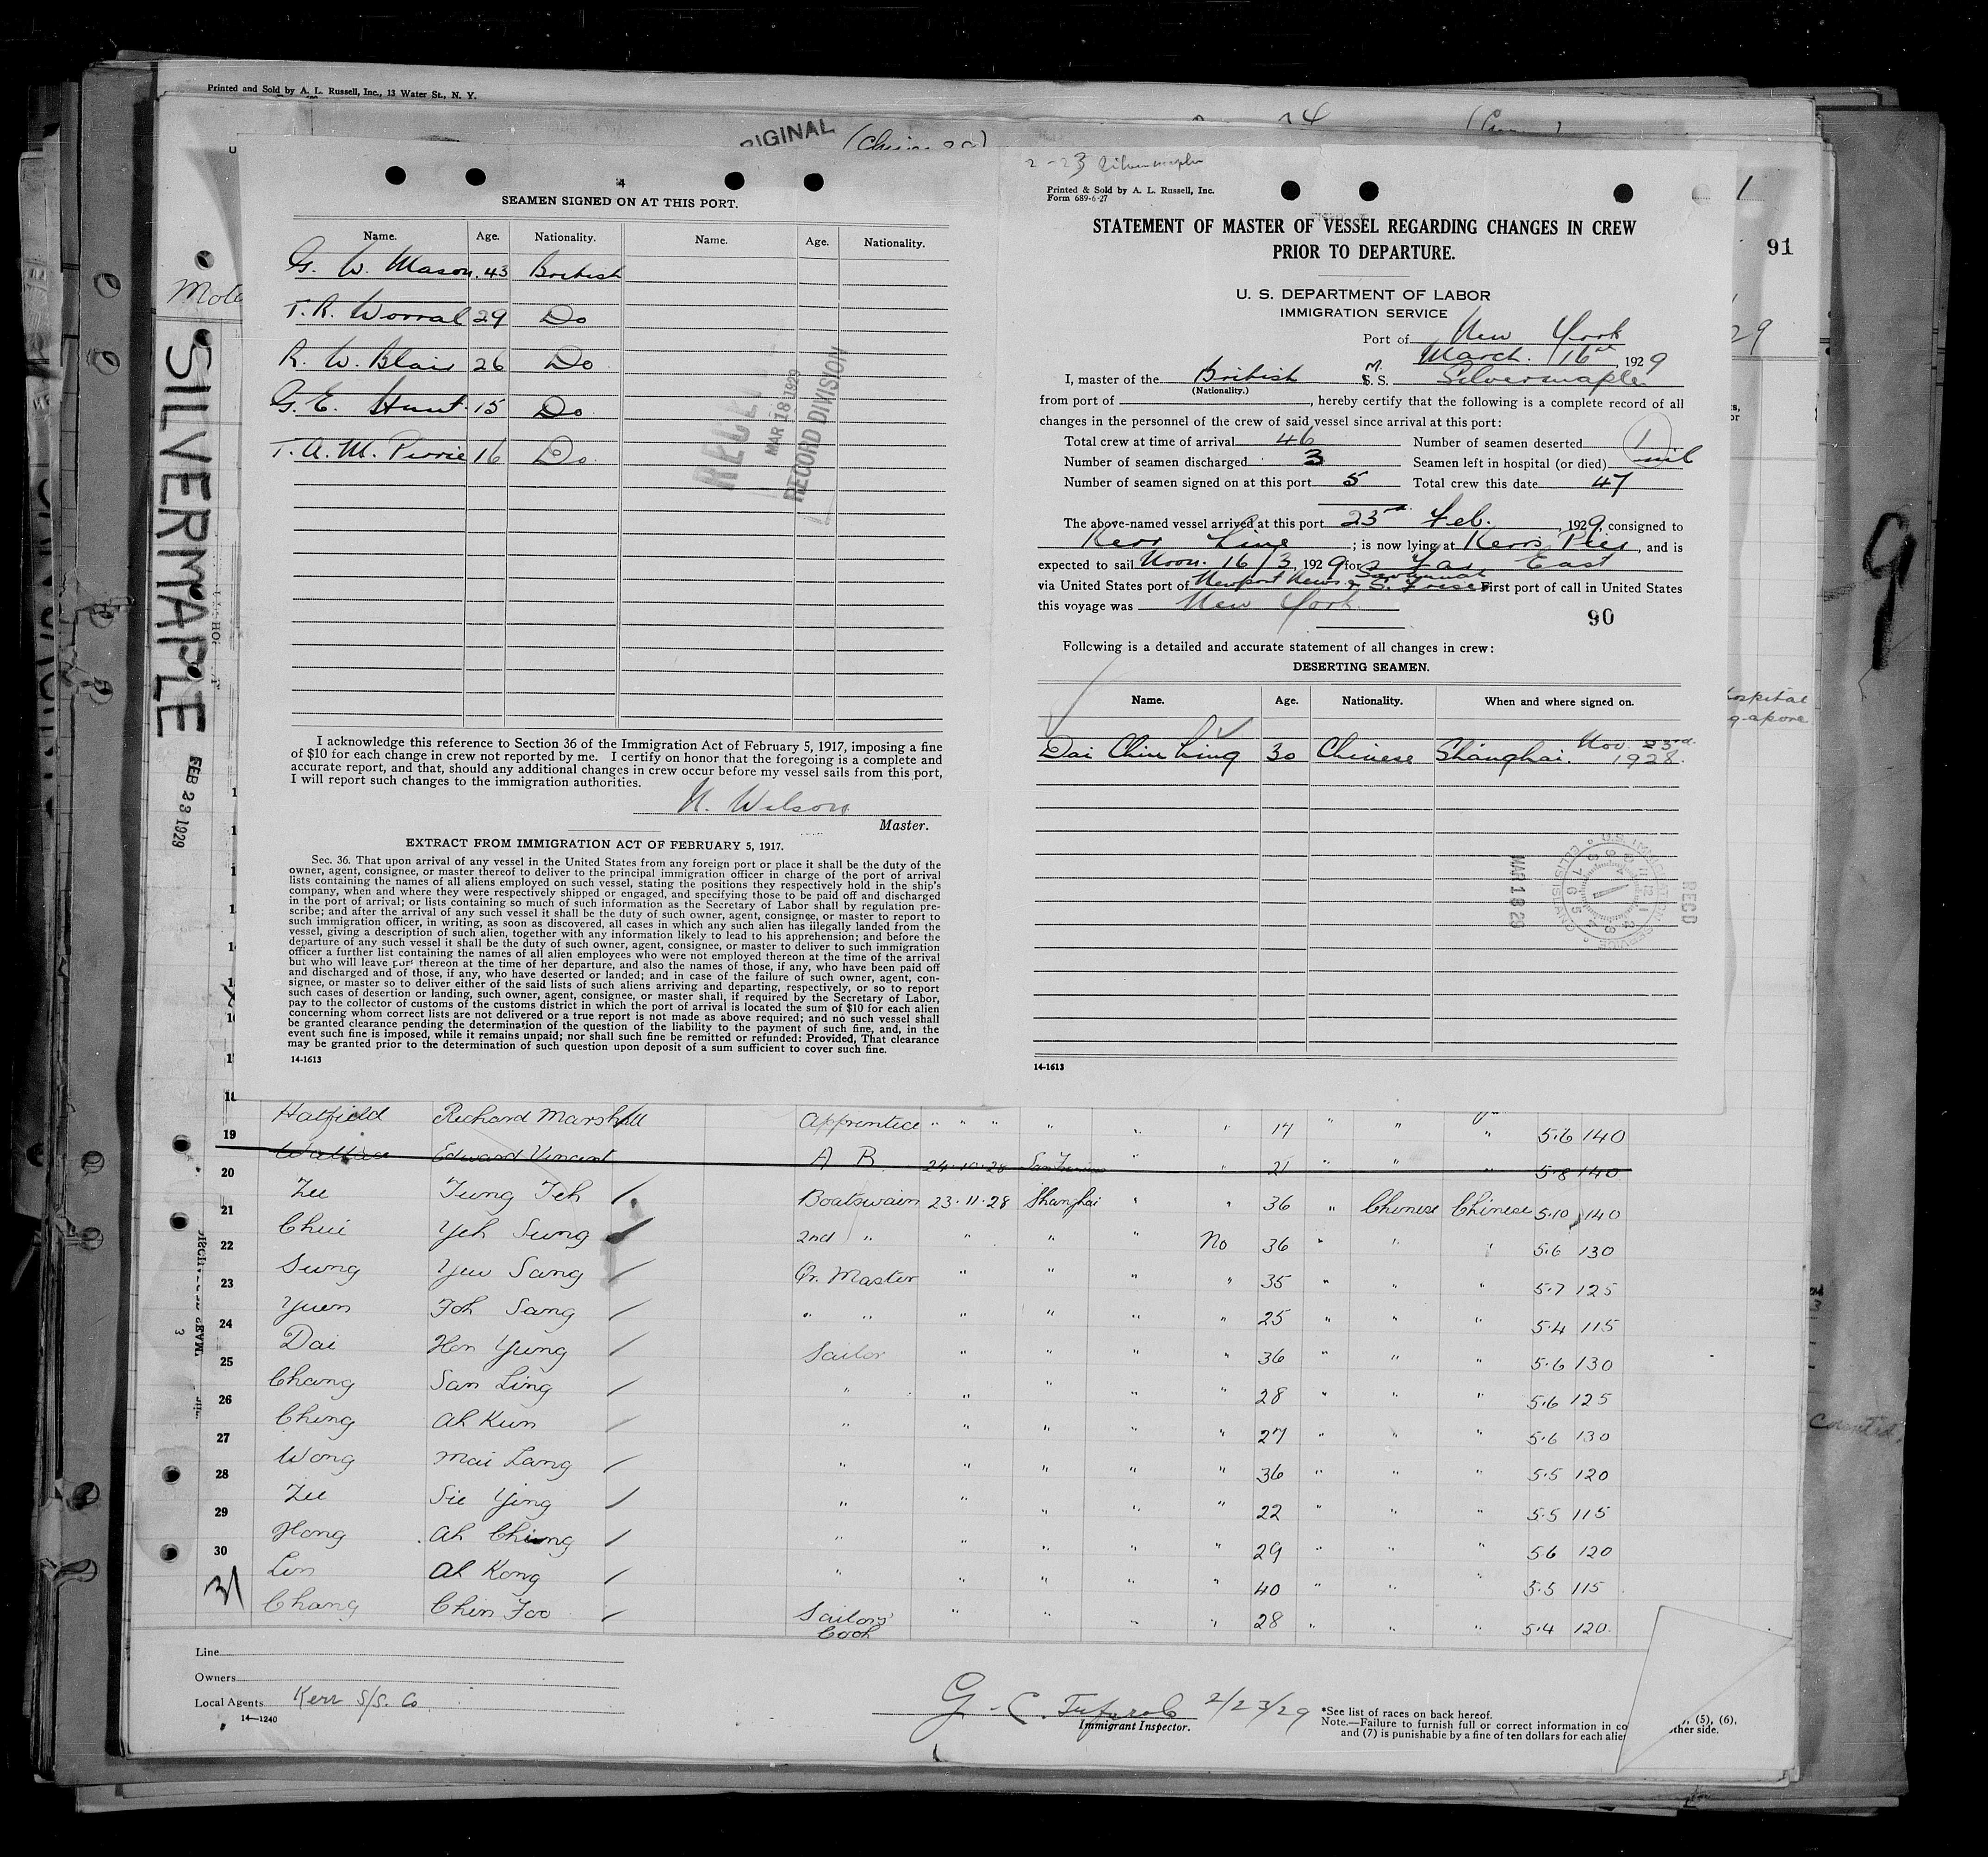 Printed and Sold by A. L. Russell, Inc., 13 Water St., N. Y.
4
SEAMEN SIGNED ON AT THIS PORT.
Name. Age. Nationality. Name. Age. Nationality.
G. W. Mason. 43 British
T. R. Worral 29 Do
R. W. Blair 26 Do
G. E. Hunt. 15 Do
T. A. M. Pirrie 16 Do.
MAR 18 1929
RECORD DIVISION
I acknowledge this reference to Section 36 of the Immigration Act of February 5, 1917, imposing a fine
of $10 for each change in crew not reported by me. I certify on honor that the foregoing is a complete and
accurate report, and that, should any additional changes in crew occur before my vessel sails from this port,
I will report such changes to the immigration authorities.
N. Wilson
Master.
EXTRACT FROM IMMIGRATION ACT OF FEBRUARY 5, 1917.
Sec. 36. That upon arrival of any vessel in the United States from any foreign port or place it shall be the duty of the
owner, agent, consignee, or master thereof to deliver to the principal immigration officer in charge of the port of arrival
lists containing the names of all aliens employed on such vessel, stating the positions they respectively hold in the ship's
company, when and where they were respectively shipped or engaged, and specifying those to be paid off and discharged
in the port of arrival; or lists containing so much of such information as the Secretary of Labor shall by regulation pre-
scribe; and after the arrival of any such vessel it shall be the duty of such owner, agent, consignee, or master to report to
such immigration officer, in writing, as soon as discovered, all cases in which any such alien has illegally landed from the
vessel, giving a description of such alien, together with any information likely to lead to his apprehension; and before the
departure of any such vessel it shall be the duty of such owner, agent, consignee, or master to deliver to such immigration
officer a further list containing the names of all alien employees who were not employed thereon at the time of the arrival
but who will leave port thereon at the time of her departure, and also the names of those, if any, who have been paid off
and discharged and of those, if any, who have deserted or landed; and in case of the failure of such owner, agent, con-
signee, or master so to deliver either of the said lists of such aliens arriving and departing, respectively, or so to report
such cases of desertion or landing, such owner, agent, consignee, or master shall, if required by the Secretary of Labor,
pay to the collector of customs of the customs district in which the port of arrival is located the sum of $10 for each alien
concerning whom correct lists are not delivered or a true report is not made as above required; and no such vessel shall
be granted clearance pending the determination of the question of the liability to the payment of such fine, and, in the
event such fine is imposed, while it remains unpaid; nor shall such fine be remitted or refunded: Provided, That clearance
may be granted prior to the determination of such question upon deposit of a sum sufficient to cover such fine.
14-1613
2-23 Silvermaple
Printed & Sold by A. L. Russell, Inc.
Form 689-6-27
STATEMENT OF MASTER OF VESSEL REGARDING CHANGES IN CREW
PRIOR TO DEPARTURE.
U. S. DEPARTMENT OF LABOR
IMMIGRATION SERVICE
Port of New York
March. 16th, 1929
I, master of the British M. S.S. Silvermaple
(Nationality.)
from port of , hereby certify that the following is a complete record of all
changes in the personnel of the crew of said vessel since arrival at this port:
Total crew at time of arrival 46 Number of seamen deserted 1
Number of seamen discharged 3 Seamen left in hospital (or died) nil
Number of seamen signed on at this port 5 Total crew this date 47
The above-named vessel arrived at this port 23rd Feb. , 1929, consigned to
Kerr Line ; is now lying at Kerrs Pier, and is
expected to sail Noon. 16/3, 1929 for Far East
via United States port of Newport News & Savannah First port of call in United States
this voyage was New York.
90
Following is a detailed and accurate statement of all changes in crew:
DESERTING SEAMEN.
Name. Age. Nationality. When and where signed on.
Dai Chin Ling 30 Chinese Shanghai. Nov. 23rd. 1928.
MAR 18 29
RECD
14-1613
91
9
SILVERMAPLE
FEB 23 1929
Hatfield Richard Marshall Apprentice " " " " " " 17 " " " 5.6 140
19 Wallace Edward Vincent A B 24.10.28 " " 21 " " " 5.8 140
20 Zee Tung Teh Boatswain 23.11.28 Shanghai " " 36 " Chinese Chinese 5.10 140
21 Chui Yeh Sung 2nd " " " " No 36 " " " 5.6 130
22 Sung Yew Sang Qr. Master " " " " 35 " " " 5.7 125
23 Yuen Foh Sang " " " " " " 25 " " " 5.4 115
24 Dai Hon Yung Sailor " " " " 36 " " " 5.6 130
25 Chang San Ling " " " " " 28 " " " 5.6 125
26 Ching Ah Kun " " " " " 27 " " " 5.6 130
27 Wong Mai Lang " " " " " 36 " " " 5.5 120
28 Zee Sie Ying " " " " " 22 " " " 5.5 115
29 Hong Ah Chung " " " " " 29 " " " 5.6 120
30 Lin Ah Kong " " " " " 40 " " " 5.5 115
31 Chang Chin Foo Sailors' Cook " " " " 28 " " " 5.4 120.
Line
Owners
Local Agents Kerr S/S. Co
14—1240
2/23/29
Immigrant Inspector.
*See list of races on back hereof.
Note.—Failure to furnish full or correct information in co , (5), (6),
and (7) is punishable by a fine of ten dollars for each alie other side.